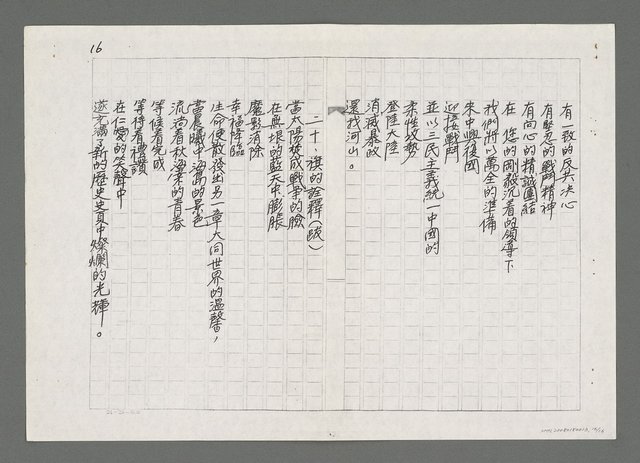 有一致的反共决心
有堅忍的戰鬥精神
有向心的精誠團結
在 您的剛毅沉着的領導下
我們將以萬全的準備
來中興復國
迎接戰鬥
並以三民主義統一中國的
柔性攻勢
登陸大陸
消滅暴政
還我河山。
二十、旗的詮釋（跋）
當太陽變成戰爭的臉
在無垠的藍天中膨脹
魔影消除
幸福降臨
生命便散發出另一章大同世界的溫馨，
當晨曦中海島的景色
流淌着秋海棠的青春
等候着完成
等待着禮讚
在仁愛的笑聲中
遂充滿了新的歷史頁中燦爛的光輝。
16